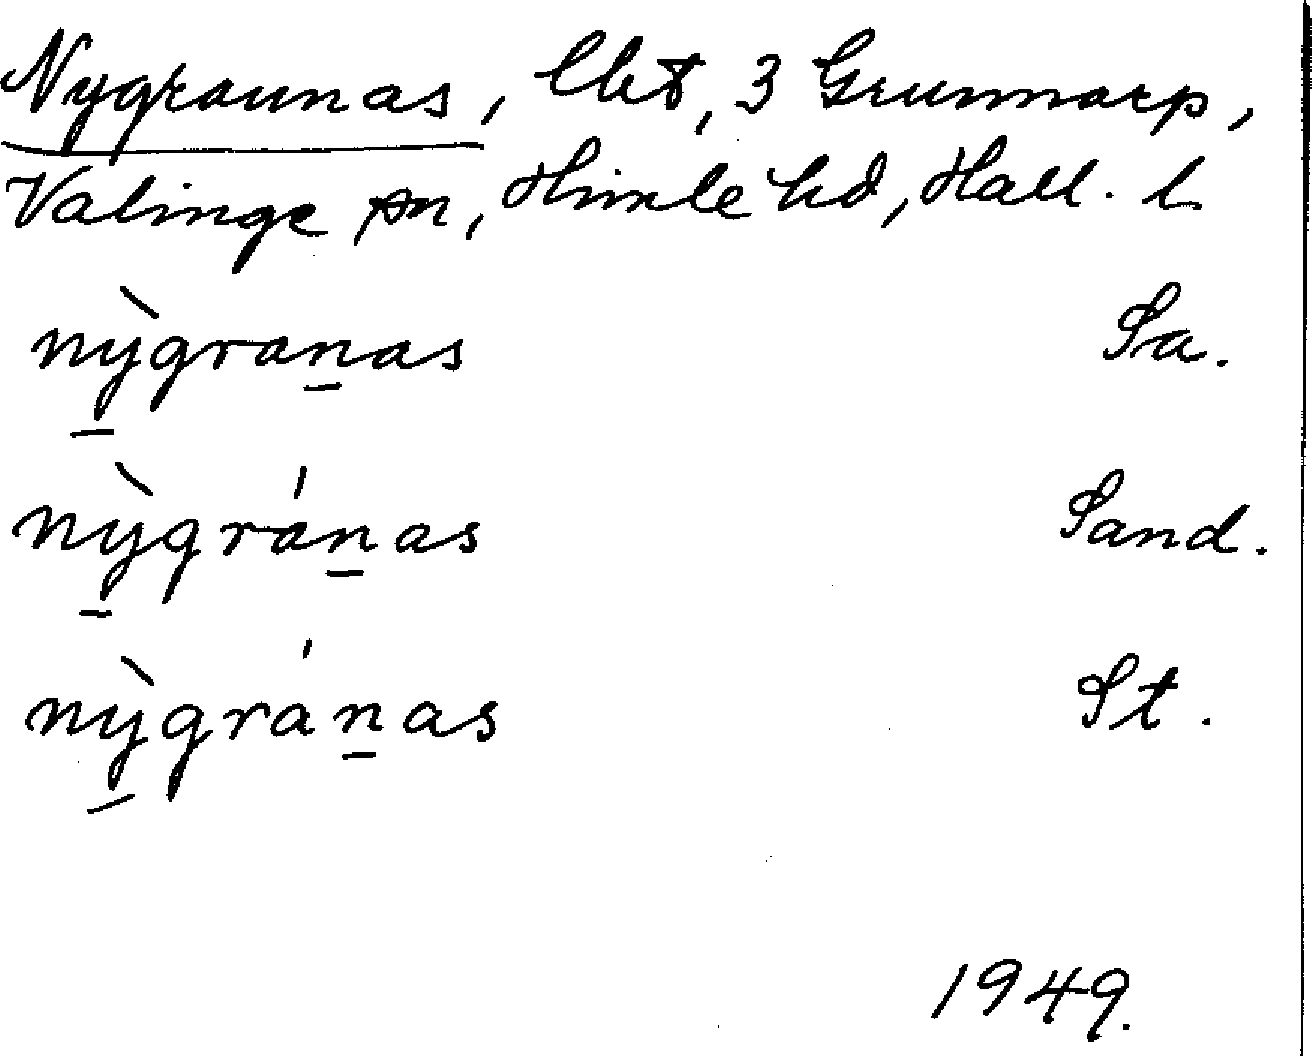 Nygrannas, lht, 3 Grunnarp,
Valinge sn, Himle hd, Hall. l.
nỳgranas Sa.
nỳgránas Sand.
nỳgránas St.
1949.